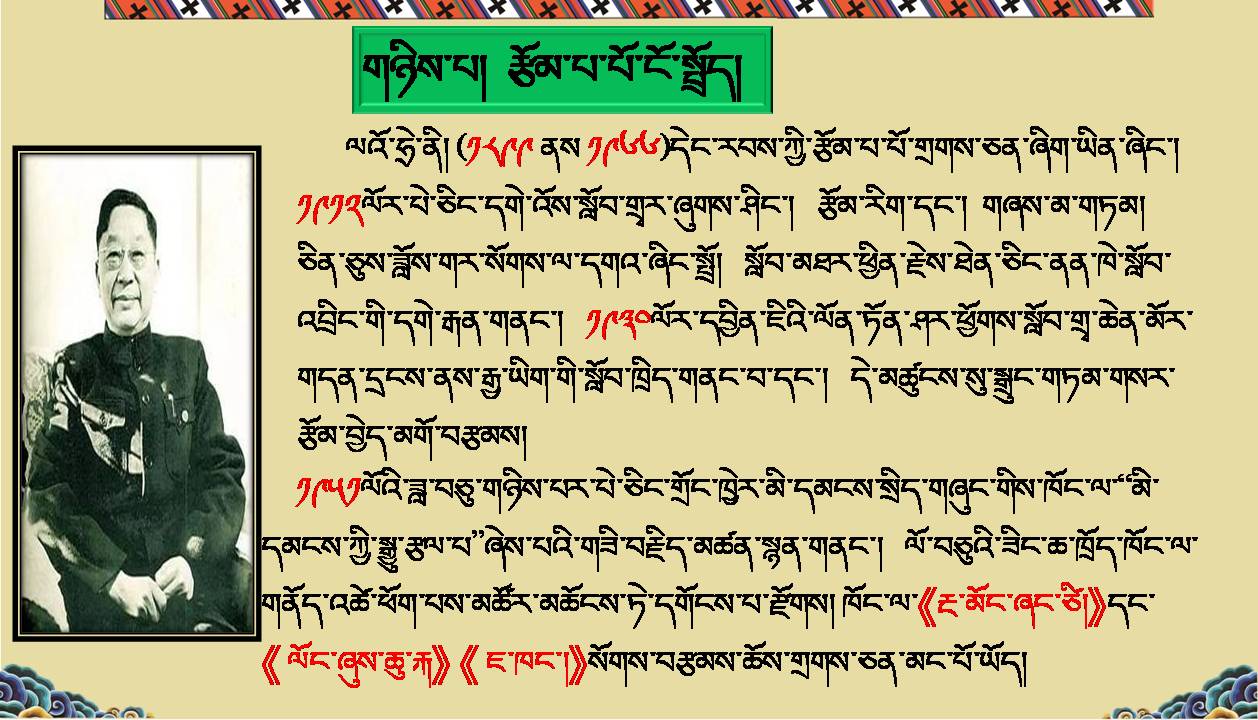 གཉིས་པ། རྩོམ་པ་པོ་ངོ་སྤྲོད།
ལའོ་ཧྲེ་ནི། (༡༨༩༩ ནས ༡༩༦༦)དེང་རབས་ཀྱི་རྩོམ་པ་པོ་གྲགས་ཅན་ཞིག་ཡིན་ཞིང་།
༡༩༡༢ལོར་པེ་ཅིང་དགེ་འོས་སློབ་གྲྭར་ཞུགས་ཤིང་། རྩོམ་རིག་དང་། གཞས་མ་གཏམ།
ཅིན་ཅུས་ཟློས་གར་སོགས་ལ་དགའ་ཞིང་སྤྲོ། སློབ་མཐར་ཕྱིན་རྗེས་ཐེན་ཅིང་ནན་ཁེ་སློབ་
འབྲིང་གི་དགེ་རྒན་གནང་། ༡༩༣༠ལོར་དབྱིན་ཇིའི་ལོན་ཏོན་ཤར་ཕྱོགས་སློབ་གྲྭ་ཆེན་མོར་
གདན་དྲངས་ནས་རྒྱ་ཡིག་གི་སློབ་ཁྲིད་གནང་བ་དང་། དེ་མཚུངས་སུ་སྒྲུང་གཏམ་གསར་
རྩོམ་བྱེད་མགོ་བརྩམས།
༡༩༥༡ལོའི་ཟླ་བཅུ་གཉིས་པར་པེ་ཅིང་གྲོང་ཁྱེར་མི་དམངས་སྲིད་གཞུང་གིས་ཁོང་ལ་“མི་
དམངས་ཀྱི་སྒྱུ་རྩལ་པ”ཞེས་པའི་གཟི་བརྗིད་མཚན་སྙན་གནང་། ལོ་བཅུའི་ཟིང་ཆ་ཁྲོད་ཁོང་ལ་
གནོད་འཚེ་ཕོག་པས་མཚོར་མཆོངས་ཏེ་དགོངས་པ་རྫོགས། ཁོང་ལ་《རྔ་མོང་ཞང་ཙི》དང་
《 ལོང་ཞུས་ཆུ་རྐ》《 ཇ་ཁང་།》སོགས་བརྩམས་ཆོས་གྲགས་ཅན་མང་པོ་ཡོད།